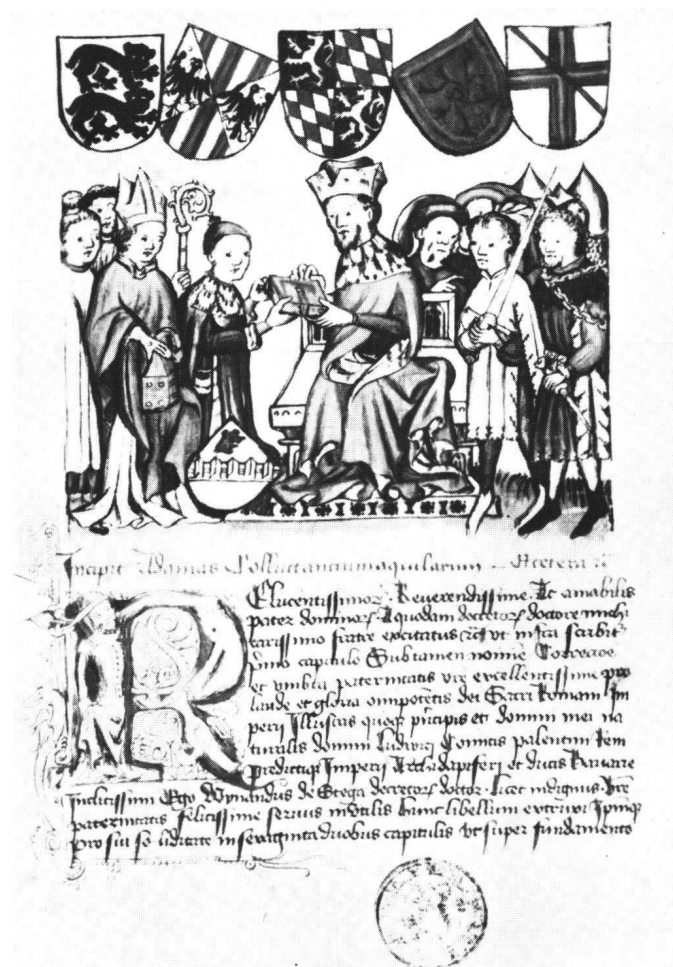 Incipit Adamas Colluctantium aquilarum
Elucentissimoꝝ Reverendissime Ac amabilis
pater dominoꝝ A quodam decretoꝝ doctore michi
carissimo fratre excitatus ut infra scribitur
primo capitulo Sub tamen nomine Correctoe
et umbra paternitatis vre excellentissime pro
laude et gloria omnipotentis dei Sacri Romani Im
perii Illustris principis et domini mei na
turalis domini ludwici Comitis palentini Reni
predictique Imperii Archidapiferi et ducis Bavarie
Inclitissimi Ego Wynandus de Stega decretoꝝ doctor licet indignus vre
paternitatis felicissime servus inutilis hunc libellum
pro sui soliditate in sexaginta duobus capitulis ut super fundamento